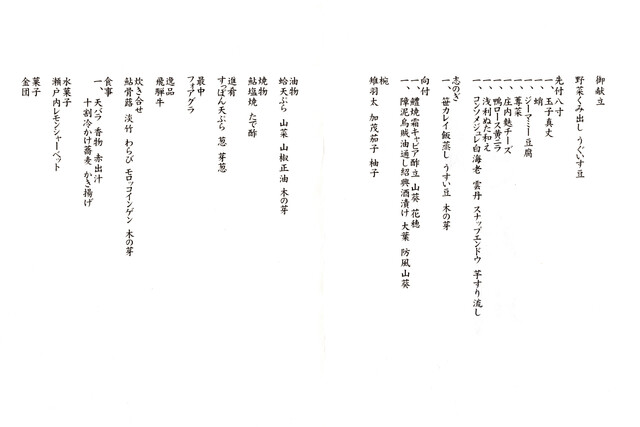 御献立
野菜くみ出し うぐいす豆
先付八寸
一、玉子真丈
一、蛸
一、ジーマミー豆腐
一、蓴菜
一、庄内麩チーズ
一、鴨ロース黄ニラ
一、浅利ぬた和え
一、コンソメジュレ白海老 雲丹 スナップエンドウ 芋すり流し
志のぎ
一、笹カレイ飯蒸し うすい豆 木の芽
向付
一、鱧焼霜キャビア酢立 山葵 花穂
一、障泥烏賊油通し紹興酒漬け 大葉 防風山葵
椀
雉羽太 加茂茄子 柚子
油物
蛤天ぷら 山菜 山椒正油 木の芽
焼物
鮎塩焼 たで酢
進肴
すっぽん天ぷら 葱 芽葱
最中
フォアグラ
逸品
飛騨牛
炊き合せ
鮎骨蕗 淡竹 わらび モロッコインゲン 木の芽
食事
一、天バラ 香物 赤出汁
十割冷かけ蕎麦 かき揚げ
水菓子
瀬戸内レモンシャーベット
菓子
金団